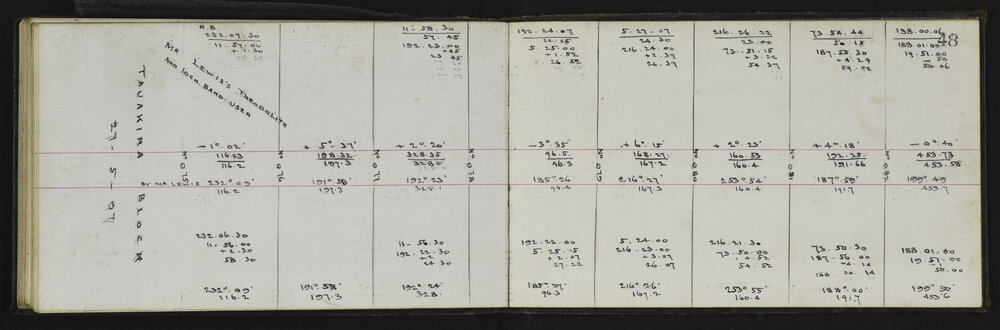 48
TAUAKIRA BLOCK
27-5-97
MR LEWIS'S THEODOLITE
AND 10CH. BAND USED
R.B
232.07.30
11-57.00
+1.30
11-58.30
57.45
192.23.00
+45
+3.45
192.24.07
22.15
5.25.00
+1.52
26.52
5-27-07
24.30
216.24.00
+2.37
26.37
216.26.22
23.00
73-51-15
+3.22
54.37
73.54.44
50.15
187.55.30
+4.29
59.59
188.00.06
188-01-00
19-51.00
50.06
-1° 02'
116.23
116.2
No 075
+5°-37'
198.32
197.3
No 076
+2°-20'
328.35
328.0
No 077
No 078
-3° 35'
96.5
96.3
No 079
+6°-15'
168.27
167.2
No 080
+2°-23'
160.53
160.4
No 081
+4°-18'
192.25
191.66
No 082
-0° 40'
453.73
453.58
BY MR LEWIS 232° 09'
116.2
191° 58'
197.3
192° 23'
328.1
185°.26
96.4
216°-27'
167.3
253° 54'
160.4
187° 59'
191.7
199° 49
453.7
232.06.30
11-56.00
+2.30
58.30
11-56.30
192.22.30
+2
24.30
192.22.00
5.25.15
+2.07
27.22
5.24.00
216.23.00
+3.07
26.07
216.21.30
73.50.00
+4.52
54.52
73.50.30
187.56.00
+4.14
188.00.14
188.01.00
19.51.00
50.00
232° 09'
116.2
191° 58'
197.3
192° 24'
328.
185°.27'
96.3
216° 26'
167.2
253° 55'
160.4
188° 00'
191.7
199° 50'
453.6